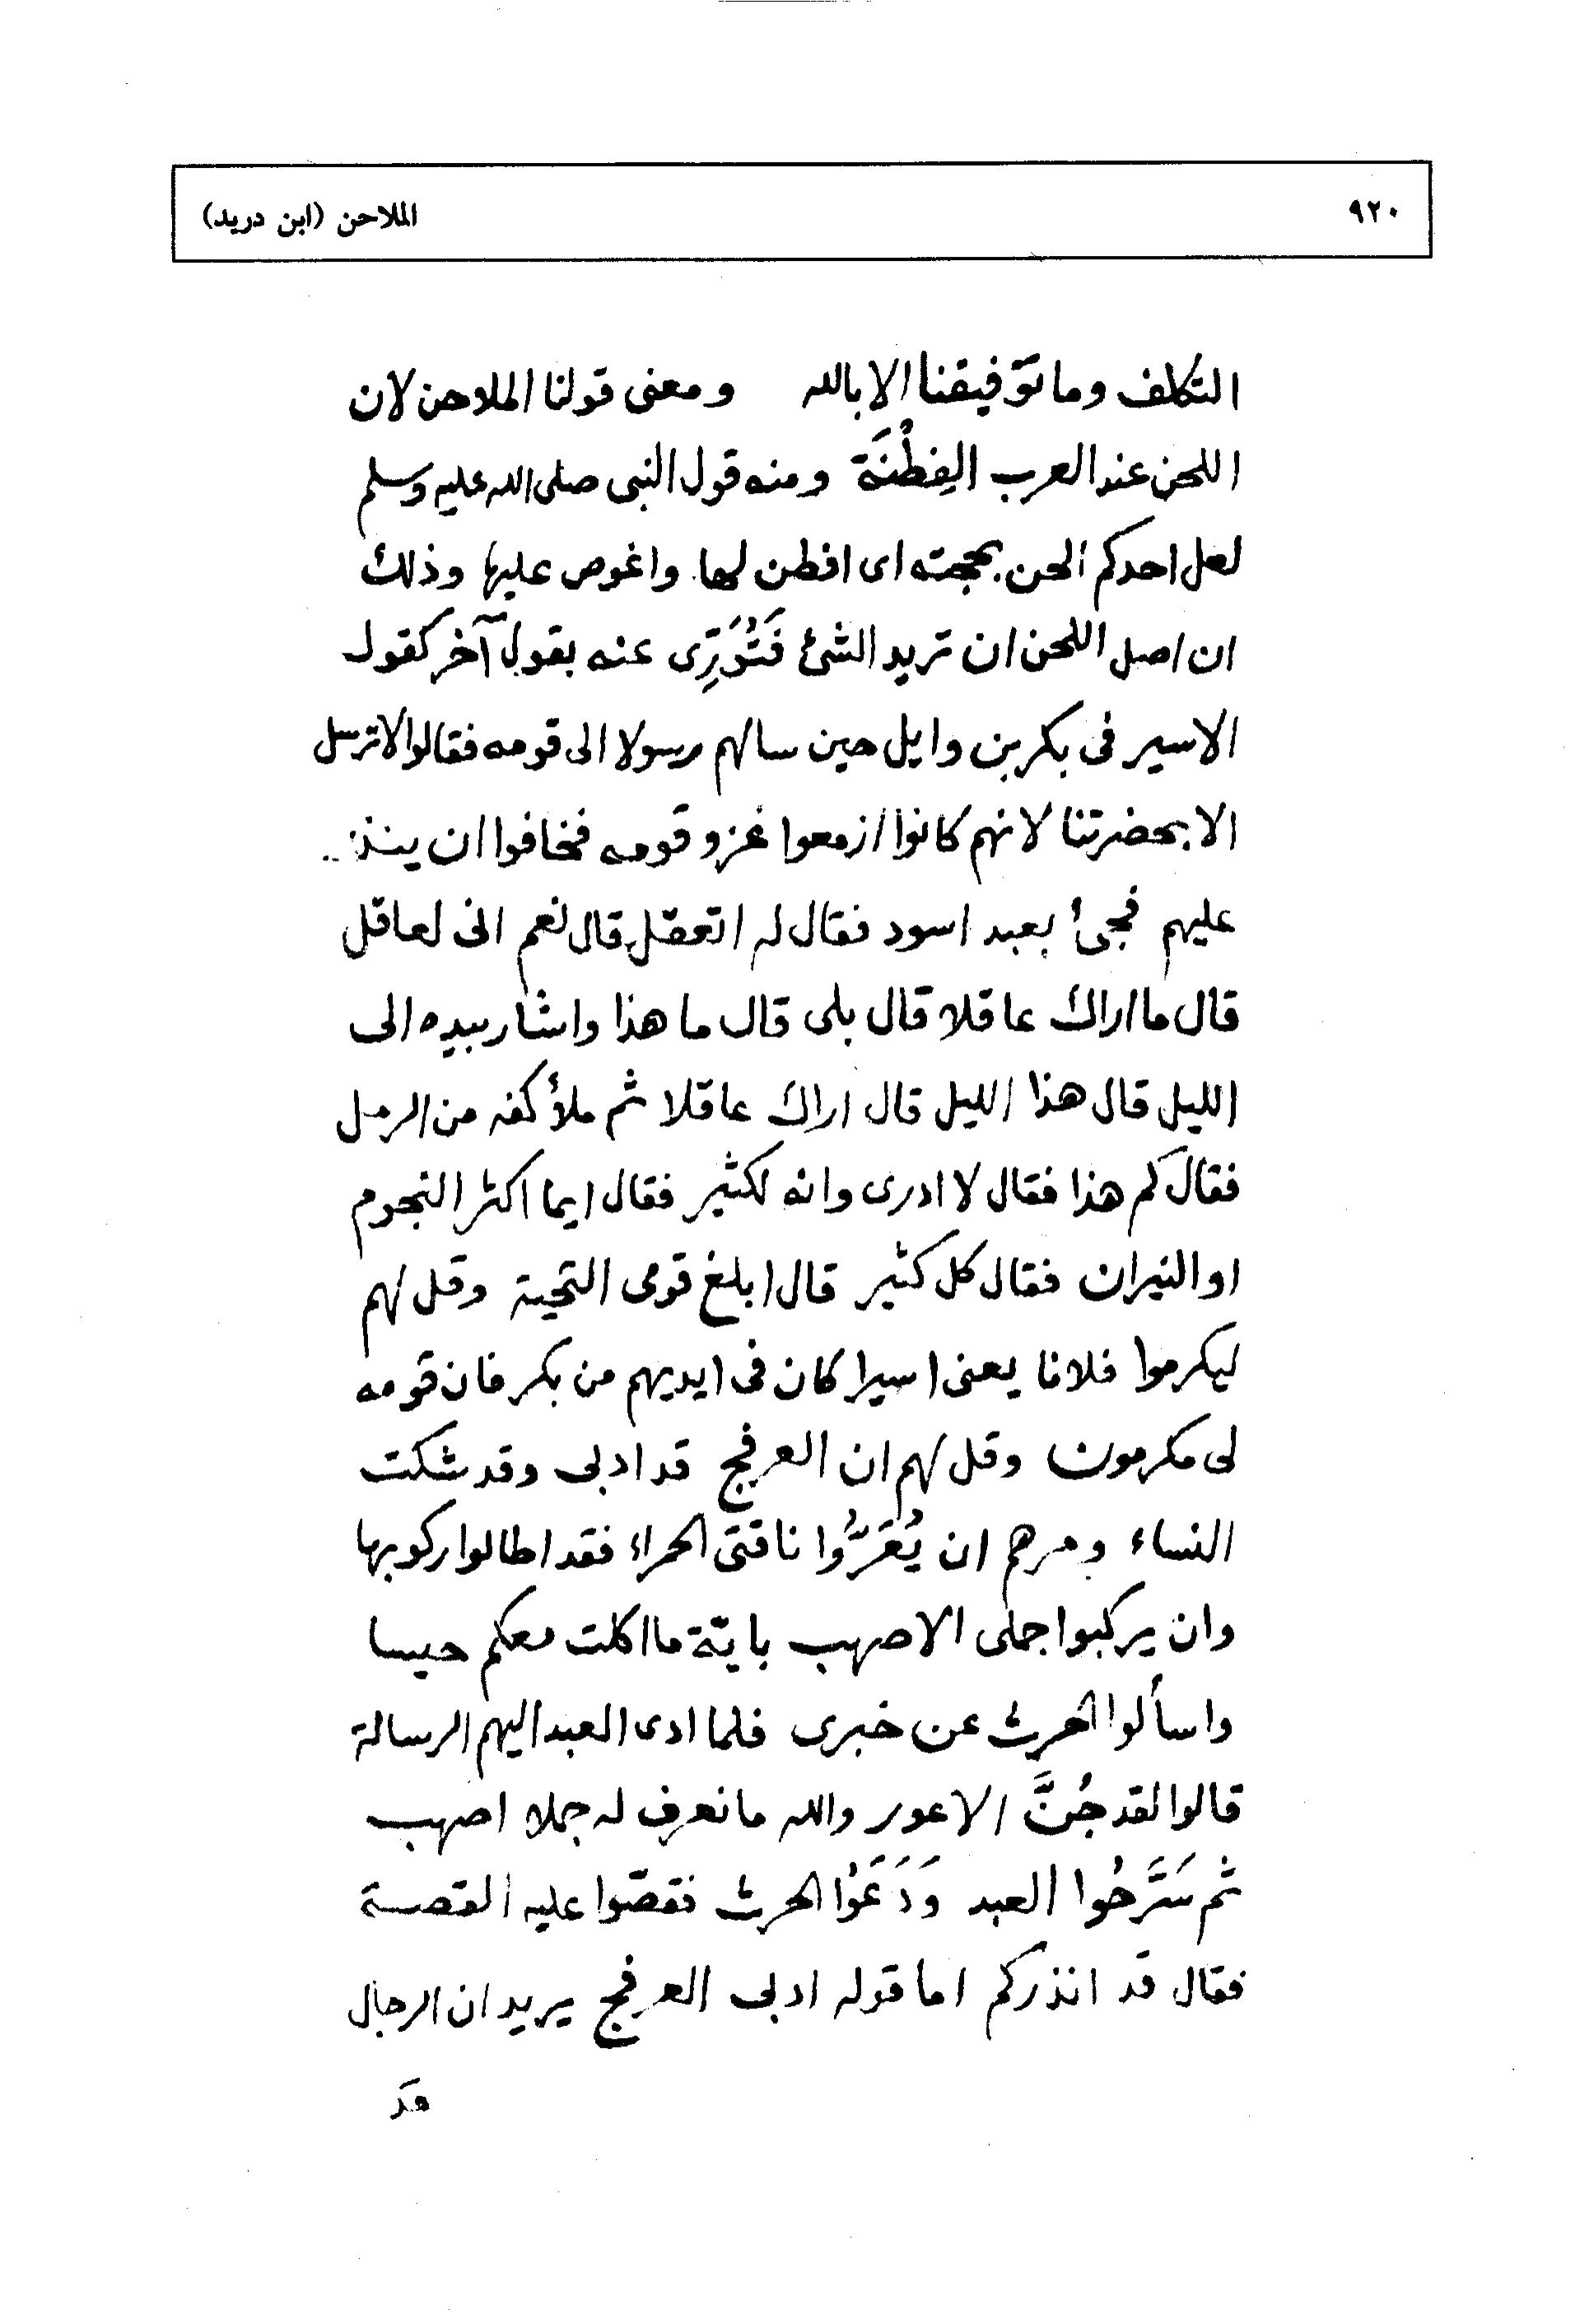 ٩٢٠
الملاحن (ابن دريد)
التكلف وما توفيقنا الا بالله ومعنى قولنا الملاحن لان
اللحن عند العرب الفِطْنَة ومنه قول النبى صلى الله عليه وسلم
لعل احدكم الحن بحجته اى افطن لها واغوص عليها وذلك
ان اصل اللحن ان تريد الشئ فَتُوَرِّى عنه بقول آخر كقول
الاسير فى بكر بن وايل حين سالهم رسولا الى قومه فقالوا لا ترسل
الا بحضرتنا لانهم كانوا ازمعوا غزو قومه فخافوا ان ينذر
عليهم فجئ بعبد اسود فقال له اتعقل قال نعم انى لعاقل
قال ما اراك عاقلا قال بلى قال ما هذا واشار بيده الى
الليل قال هذا الليل قال اراك عاقلا ثم ملأ كفه من الرمل
فقال كم هذا فقال لا ادرى وانه لكثير فقال ايما اكثر النجوم
او النيران فقال كل كثير قال ابلغ قومى التحية وقل لهم
ليكرموا فلانا يعنى اسيرا كان فى ايديهم من بكر فان قومه
لى مكرمون وقل لهم ان العرفج قد ادبى وقد شكت
النساء ومرهم ان يُعَرُّوا ناقتى الحمراء فقد اطالوا ركوبها
وان يركبوا جملى الاصهب باية ما اكلت معكم حيسا
واسألوا الحرث عن خبرى فلما ادى العبد اليهم الرسالة
قالوا لقد جُنَّ الاعور والله ما نعرف له جملا اصهب
ثم سَرَّحُوا العبد وَدَعَوُا الحرث فقصّوا عليه القصة
فقال قد انذركم اما قوله ادبى العرفج يريد ان الرجال
قد